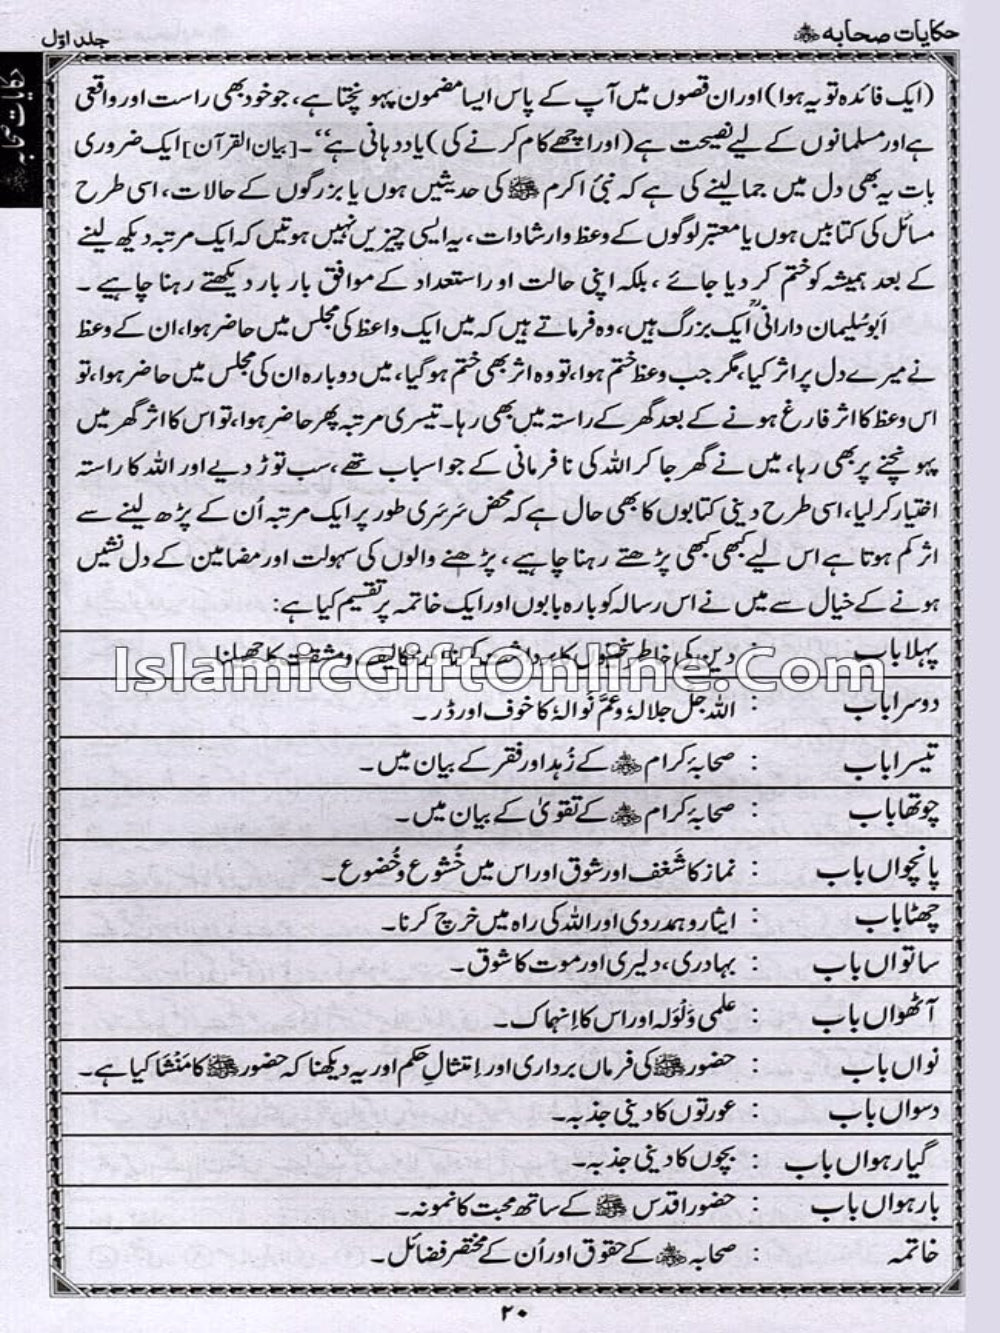 حکایات صحابہ رضی اللہ عنہم
جلد اوّل
حکایات صحابہ
(ایک فائدہ تو یہ ہوا) اور ان قصوں میں آپ کے پاس ایسا مضمون پہونچتا ہے، جو خود بھی راست اور واقعی
ہے اور مسلمانوں کے لیے نصیحت ہے (اور اچھے کام کرنے کی) یاد دہانی ہے‘‘۔ [بیان القرآن] ایک ضروری
بات یہ بھی دل میں جما لینے کی ہے کہ نبیٔ اکرم ﷺ کی حدیثیں ہوں یا بزرگوں کے حالات، اسی طرح
مسائل کی کتابیں ہوں یا معتبر لوگوں کے وعظ و ارشادات، یہ ایسی چیزیں نہیں ہوتیں کہ ایک مرتبہ دیکھ لینے
کے بعد ہمیشہ کو ختم کر دیا جائے، بلکہ اپنی حالت اور استعداد کے موافق بار بار دیکھتے رہنا چاہیے۔
ابو سُلیمان دارانیؒ ایک بزرگ ہیں، وہ فرماتے ہیں کہ میں ایک واعظ کی مجلس میں حاضر ہوا، ان کے وعظ
نے میرے دل پر اثر کیا، مگر جب وعظ ختم ہوا، تو وہ اثر بھی ختم ہو گیا، میں دوبارہ ان کی مجلس میں حاضر ہوا، تو
اس وعظ کا اثر فارغ ہونے کے بعد گھر کے راستہ میں بھی رہا۔ تیسری مرتبہ پھر حاضر ہوا، تو اس کا اثر گھر میں
پہونچنے پر بھی رہا، میں نے گھر جا کر اللہ کی نافرمانی کے جو اسباب تھے، سب توڑ دیے اور اللہ کا راستہ
اختیار کر لیا، اسی طرح دینی کتابوں کا بھی حال ہے کہ محض سَرسَری طور پر ایک مرتبہ اُن کے پڑھ لینے سے
اثر کم ہوتا ہے اس لیے کبھی کبھی پڑھتے رہنا چاہیے، پڑھنے والوں کی سہولت اور مضامین کے دل نشیں
ہونے کے خیال سے میں نے اس رسالہ کو بارہ بابوں اور ایک خاتمہ پر تقسیم کیا ہے:
پہلا باب : دین کی خاطر سختیوں کا برداشت کرنا اور تکالیف و مشقت کا جھیلنا
IslamicGiftOnline.Com
دوسرا باب : اللہ جل جلالہٗ و عمّ نوالہٗ کا خوف اور ڈر۔
تیسرا باب : صحابۂ کرام رضی اللہ عنہم کے زُہد اور فقر کے بیان میں۔
چوتھا باب : صحابۂ کرام رضی اللہ عنہم کے تقویٰ کے بیان میں۔
پانچواں باب : نماز کا شَغَف اور شوق اور اس میں خُشوع و خُضوع۔
چھٹا باب : ایثار و ہمدردی اور اللہ کی راہ میں خرچ کرنا۔
ساتواں باب : بہادری، دلیری اور موت کا شوق۔
آٹھواں باب : علمی وَلوَلہ اور اس کا انہماک۔
نواں باب : حضور ﷺ کی فرماں برداری اور اِمتثالِ حکم اور یہ دیکھنا کہ حضور ﷺ کا مَنْشَا کیا ہے۔
دسواں باب : عورتوں کا دینی جذبہ۔
گیارہواں باب : بچوں کا دینی جذبہ۔
بارہواں باب : حضور اقدس ﷺ کے ساتھ محبت کا نمونہ۔
خاتمہ : صحابہ رضی اللہ عنہم کے حقوق اور اُن کے مختصر فضائل۔
۲۰